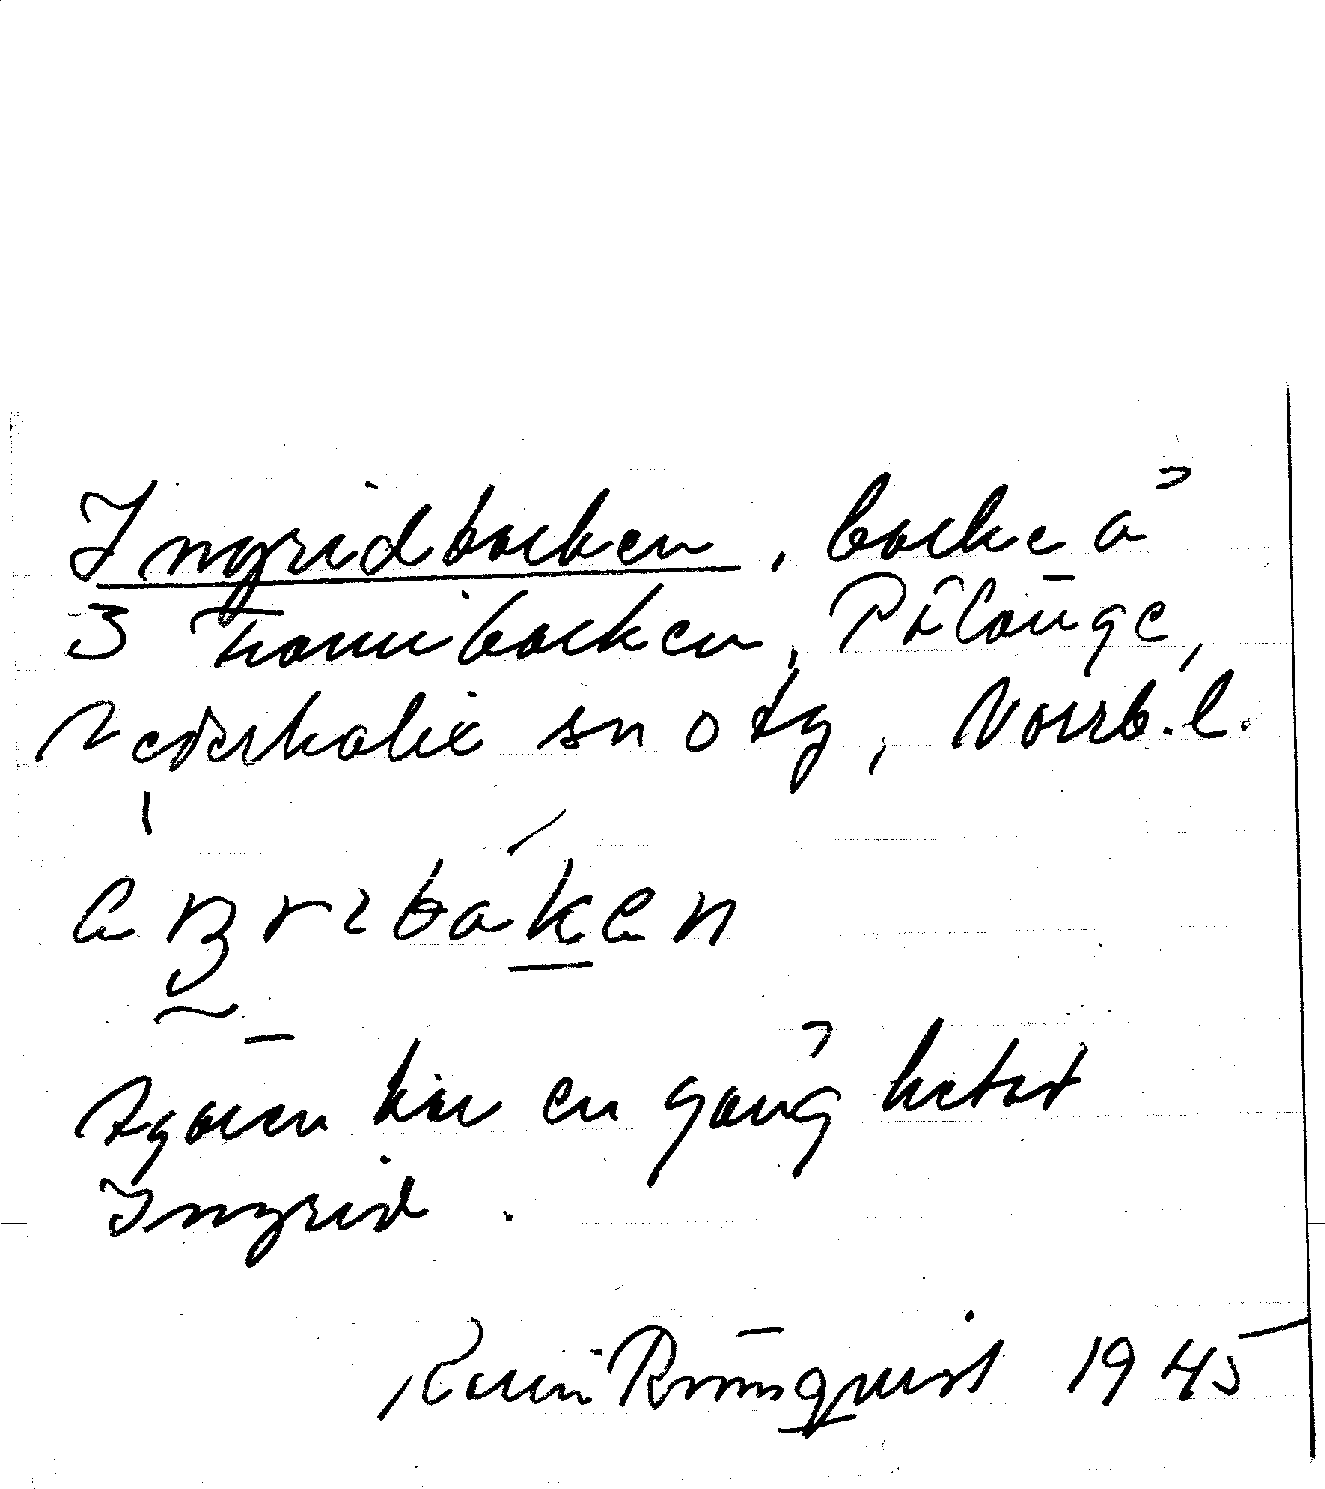 Ingridbacken, backe å
3 Frambacken, Pålänge,
Nederkalix sn o tg, Norrb. l.
ägaren här en gång hetat
Ingrid.
Karin Rönnqvist 1945